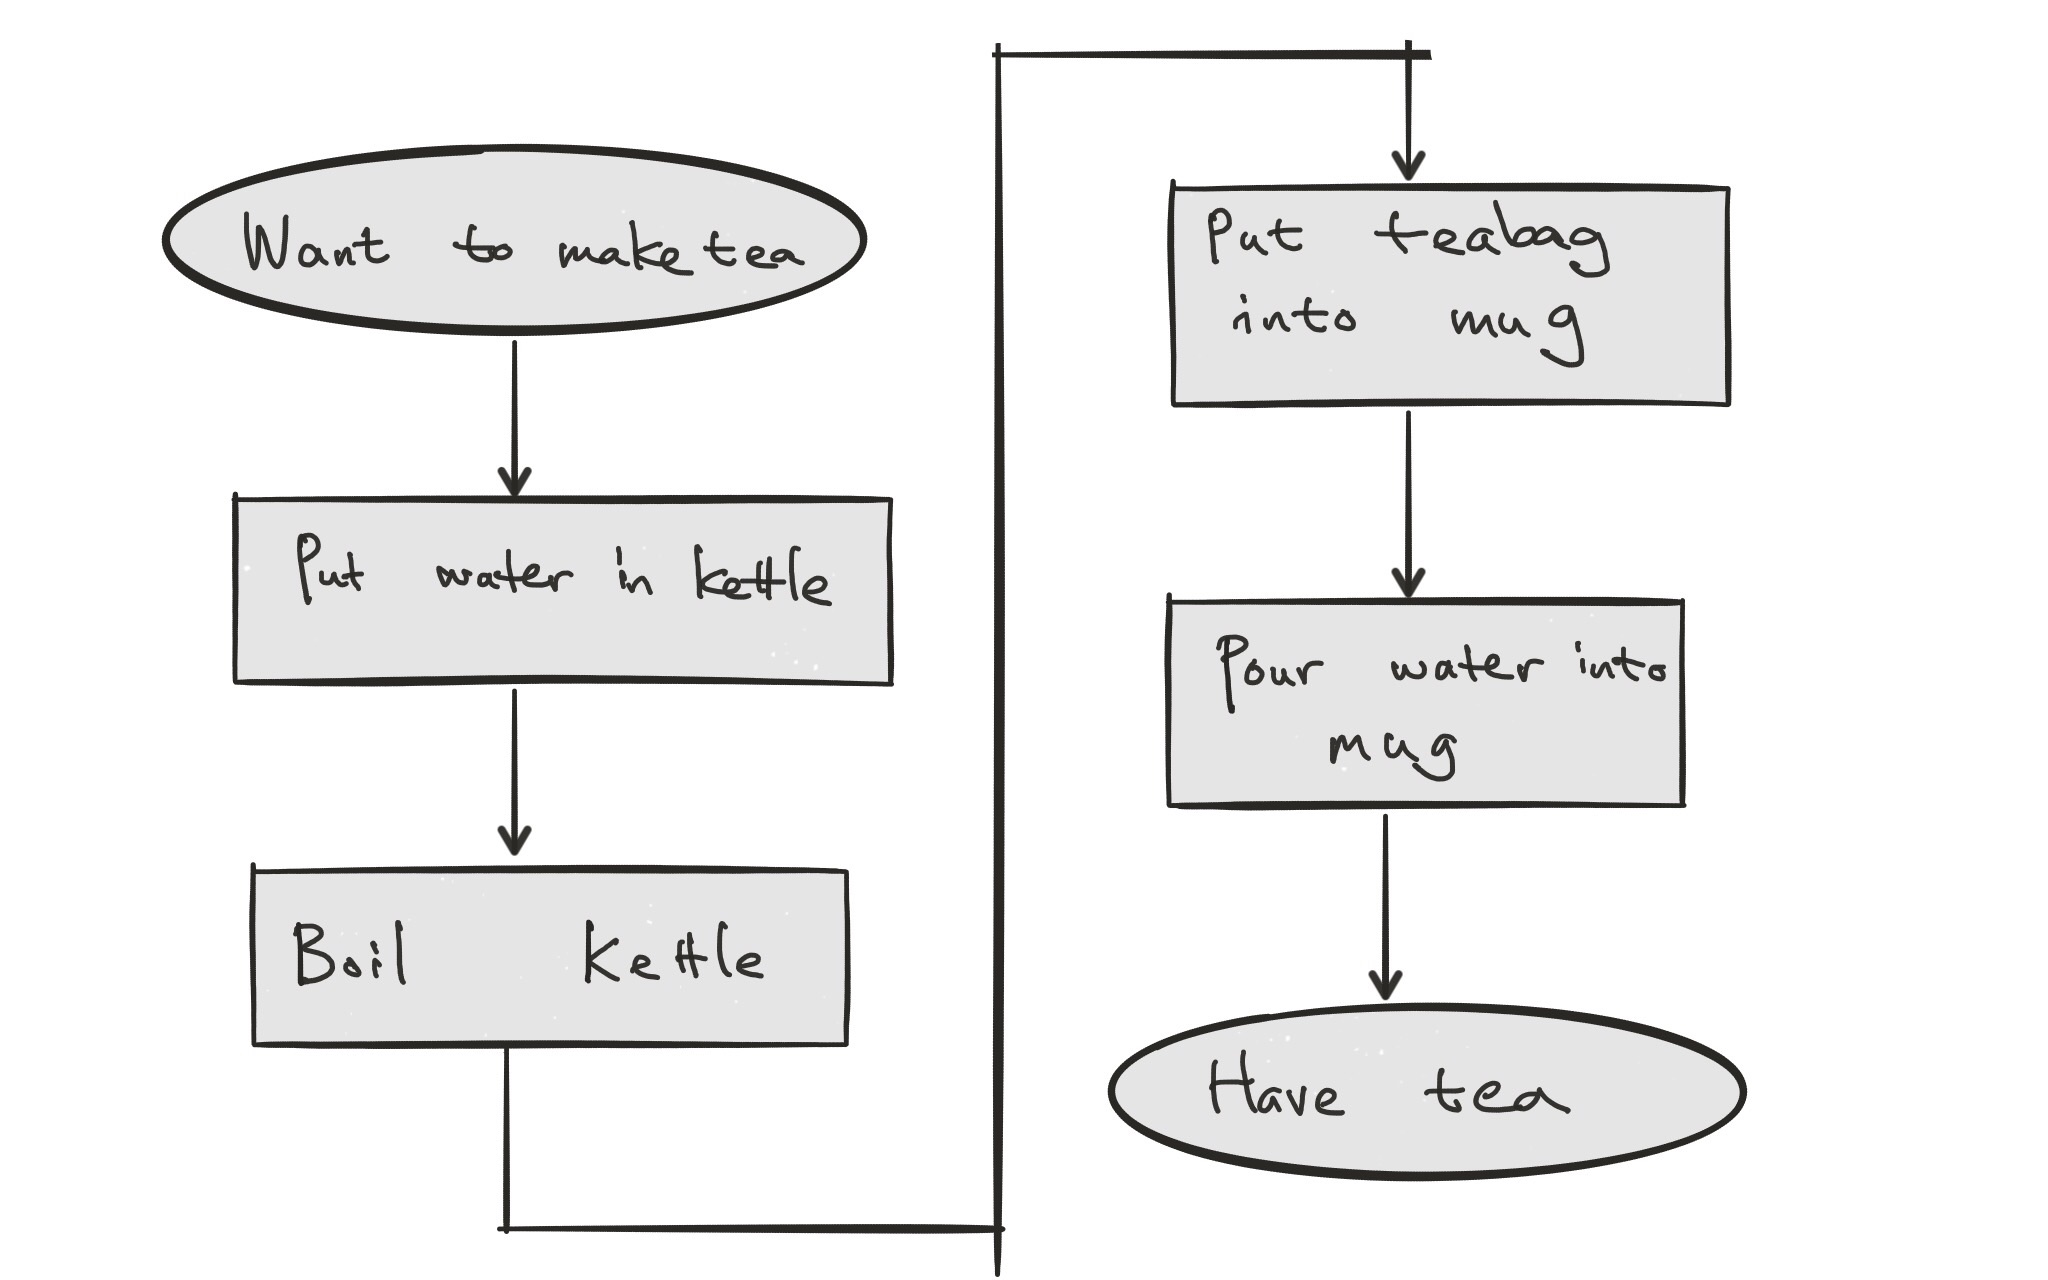 Want to make tea
Put water in kettle
Boil Kettle
Put teabag
into mug
Pour water into
mug
Have tea